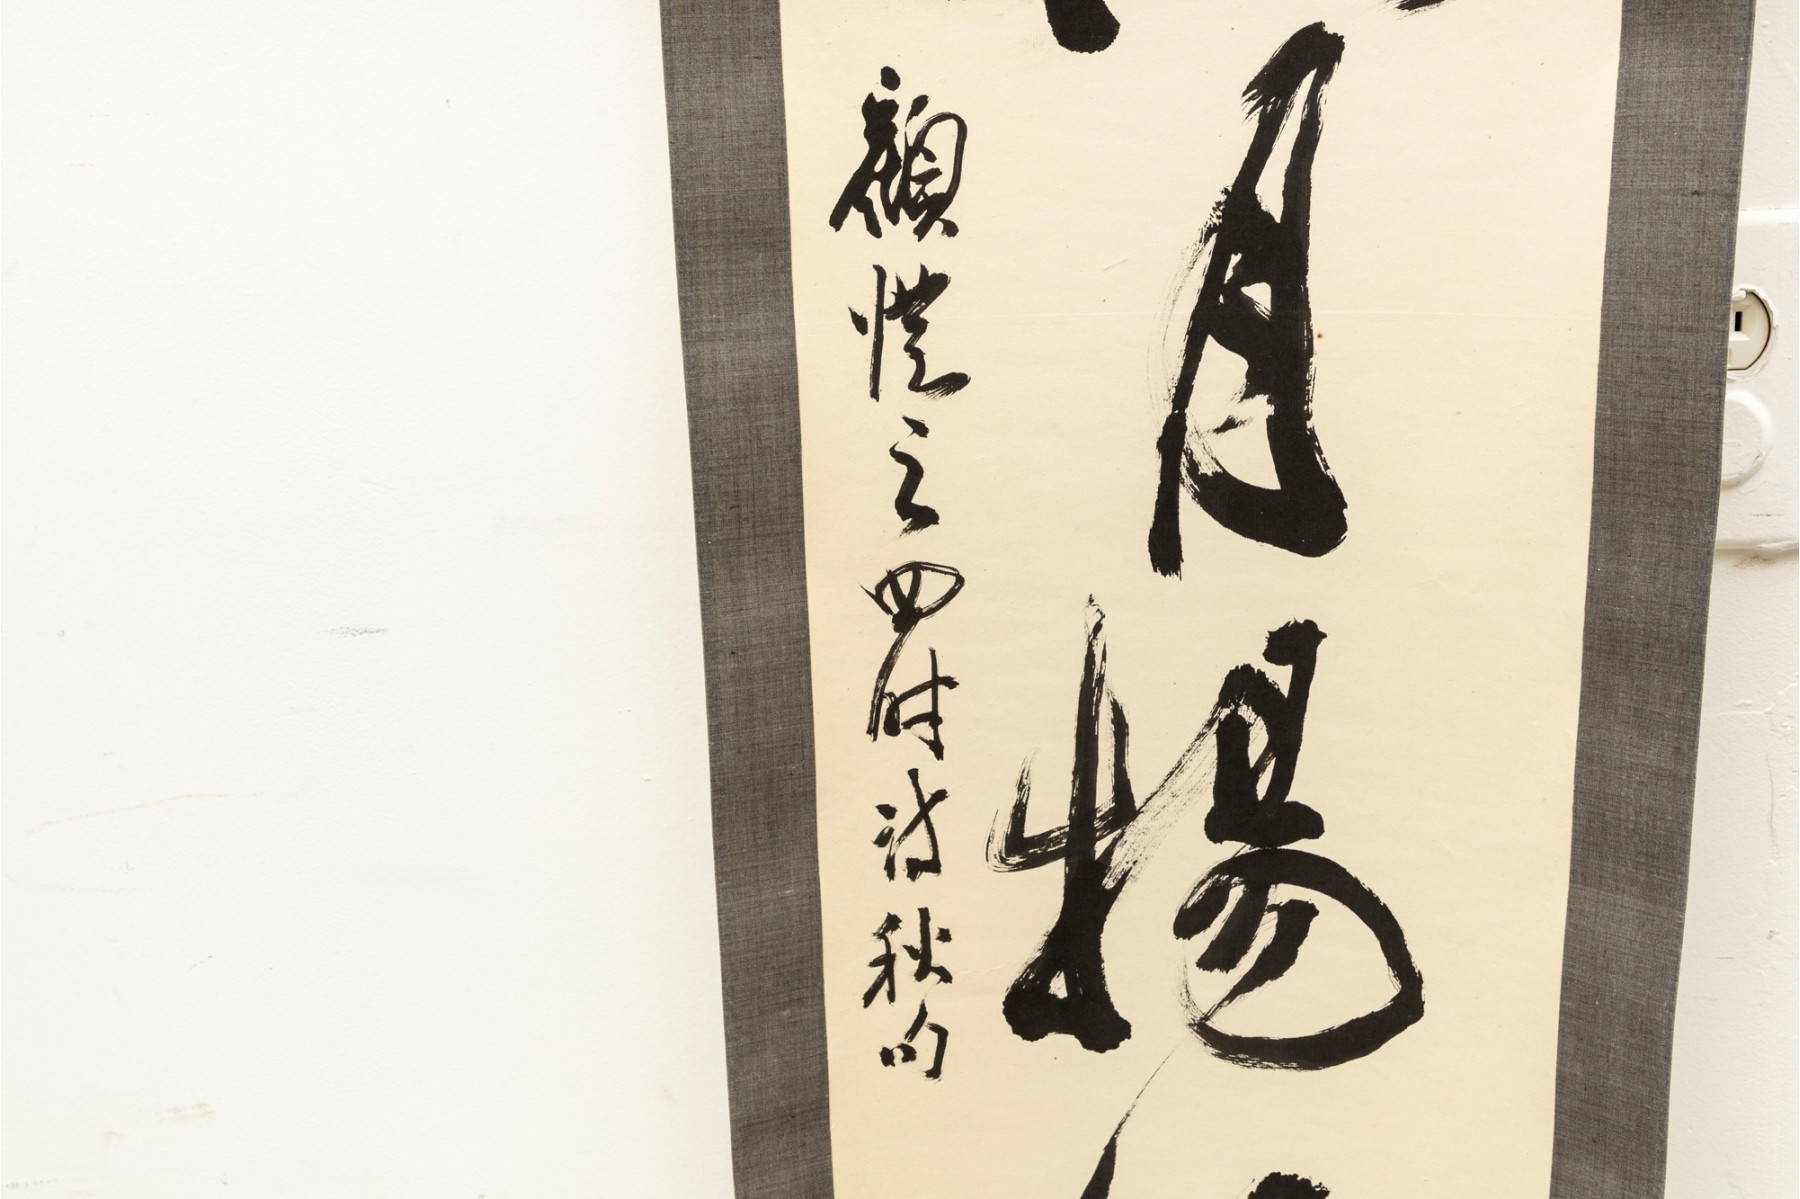 月揚
顧愷之四時詩秋句